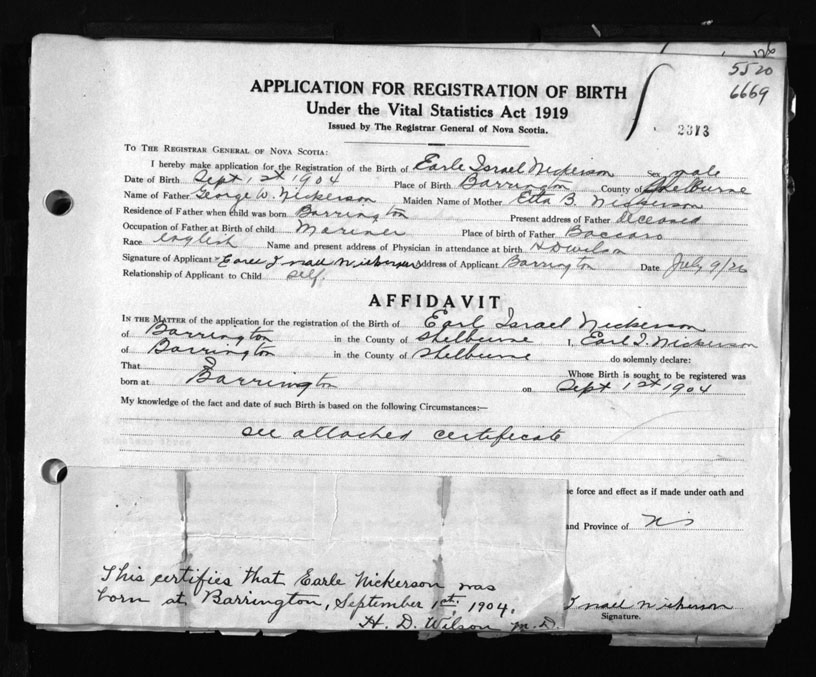 5520
6669
2373
APPLICATION FOR REGISTRATION OF BIRTH
Under the Vital Statistics Act 1919
Issued by The Registrar General of Nova Scotia.
To The Registrar General of Nova Scotia:
I hereby make application for the Registration of the Birth of Earle Israel Nickerson Sex male
Date of Birth Sept 1st 1904 Place of Birth Barrington County of Shelburne
Name of Father George W. Nickerson Maiden Name of Mother Etta B. Nickerson
Residence of Father when child was born Barrington Present address of Father Deceased
Occupation of Father at Birth of child Mariner Place of birth of Father Baccaro
Race english Name and present address of Physician in attendance at birth H D Wilson
Signature of Applicant Earle Israel Nickerson Address of Applicant Barrington Date July 9/26
Relationship of Applicant to Child self.
AFFIDAVIT
In the Matter of the application for the registration of the Birth of Earl Israel Nickerson
of Barrington in the County of Shelburne I, Earl I. Nickerson
of Barrington in the County of Shelburne do solemnly declare:
That Whose Birth is sought to be registered was
born at Barrington on Sept 1st 1904
My knowledge of the fact and date of such Birth is based on the following Circumstances:—
see attached certificate
force and effect as if made under oath and
and Province of NS
This certifies that Earle Nickerson was
born at Barrington, September 1st, 1904.
H. D. Wilson M.D.
Israel Nickerson
Signature.